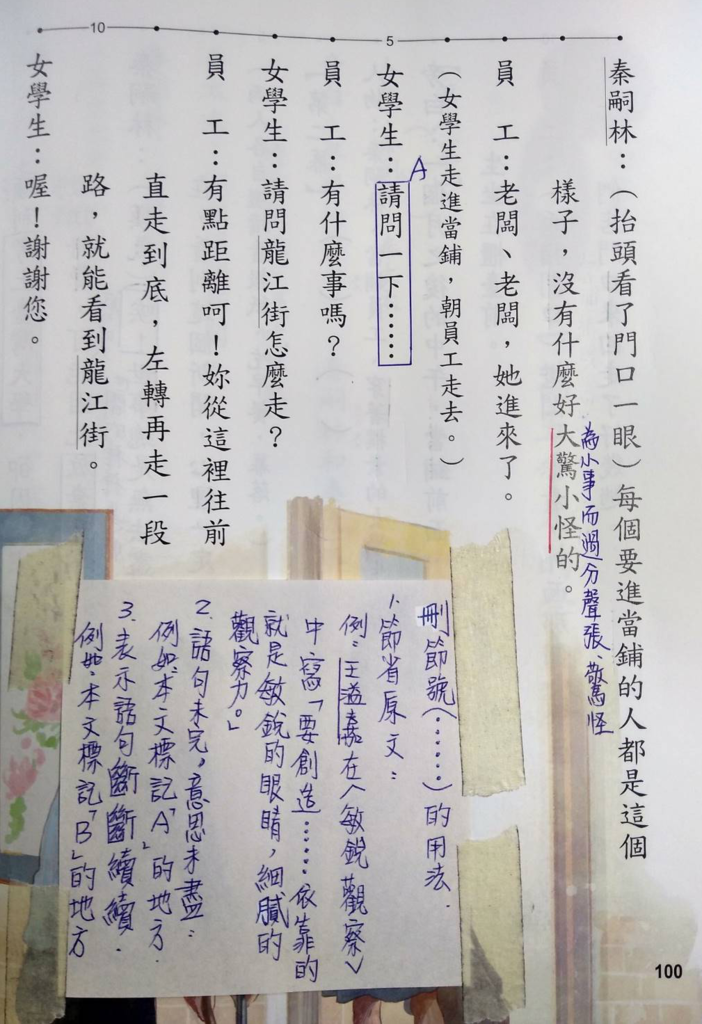 秦嗣林：（抬頭看了門口一眼）每個要進當鋪的人都是這個
樣子，沒有什麼好大驚小怪的。
為小事而過分聲張、驚怪
員　工：老闆、老闆，她進來了。
（女學生走進當鋪，朝員工走去。）
女學生：請問一下……
A
員　工：有什麼事嗎？
女學生：請問龍江街怎麼走？
員　工：有點距離呵！妳從這裡往前
直走到底，左轉再走一段
路，就能看到龍江街。
女學生：喔！謝謝您。
5
10
刪節號（……）的用法.
1.節省原文：
例：王溢嘉在〈敏銳觀察〉
中寫「要創造……依靠的
就是敏銳的眼睛，細膩的
觀察力。」
2.語句未完，意思未盡：
例如：本文標記「A」的地方.
3.表示語句斷斷續續.
例如：本文標記「B」的地方
100